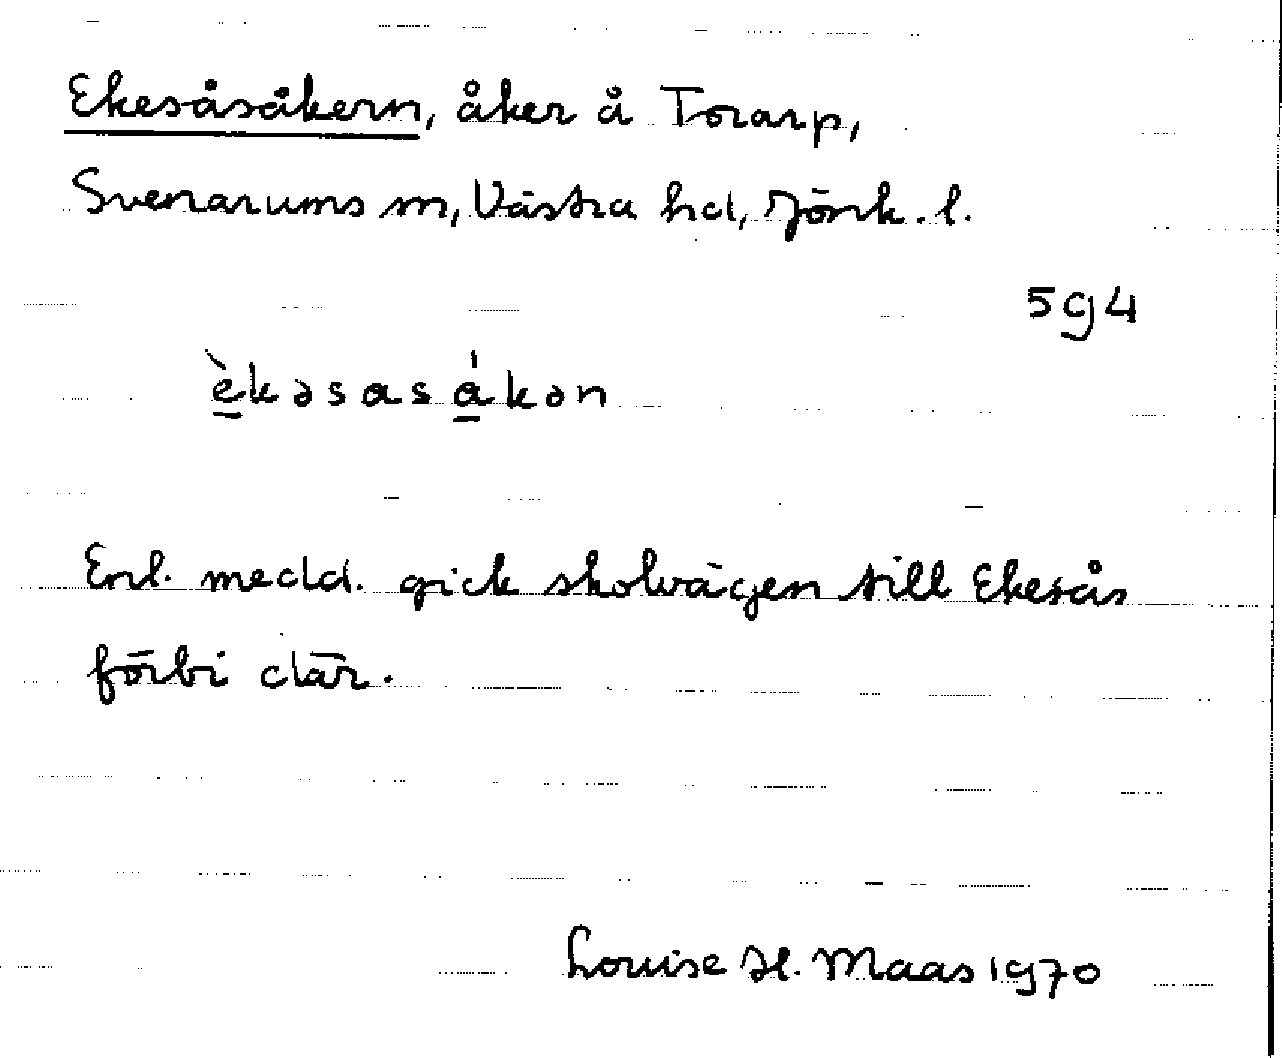 Ekesåsåkern, åker å Torarp,
Svenarums sn, Västra hd, Jönk. l.
594
è̱kəsasá̱kən
Enl. medd. gick skolvägen till Ekesås
förbi där.
Louise H. Maas 1970